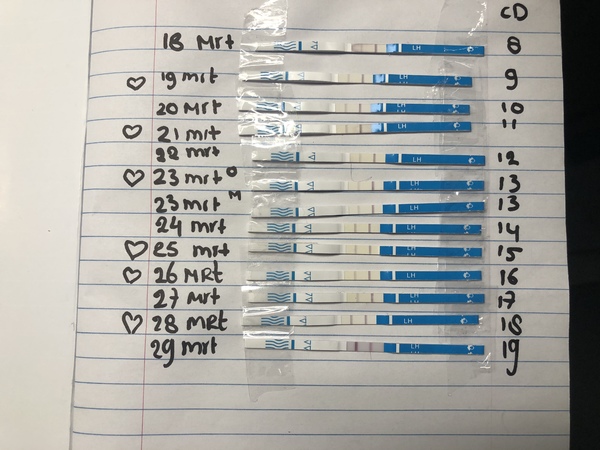 CD
18 Mrt LH 8
♡ 19 mrt LH 9
20 Mrt LH 10
♡ 21 mrt LH 11
22 mrt LH 12
♡ 23 mrt O LH 13
23 mrt M LH 13
24 mrt LH 14
♡ 25 mrt LH 15
♡ 26 MRt LH 16
27 Mrt LH 17
♡ 28 MRt LH 18
29 mrt LH 19